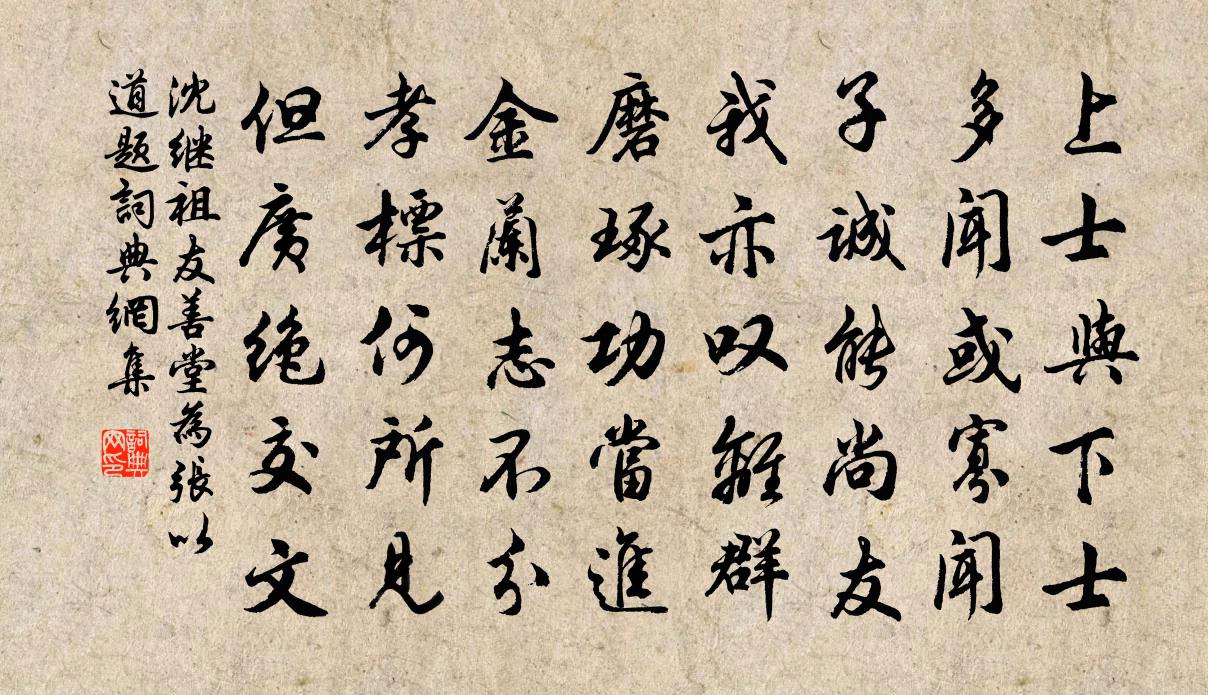 上士與下士
多聞或寡聞
子誠能尚友
我亦叹離群
磨琢功當進
金蘭志不分
孝標何所見
但廣绝交文
沈继祖友善堂為張以
道题詞典網集
詞典
网印